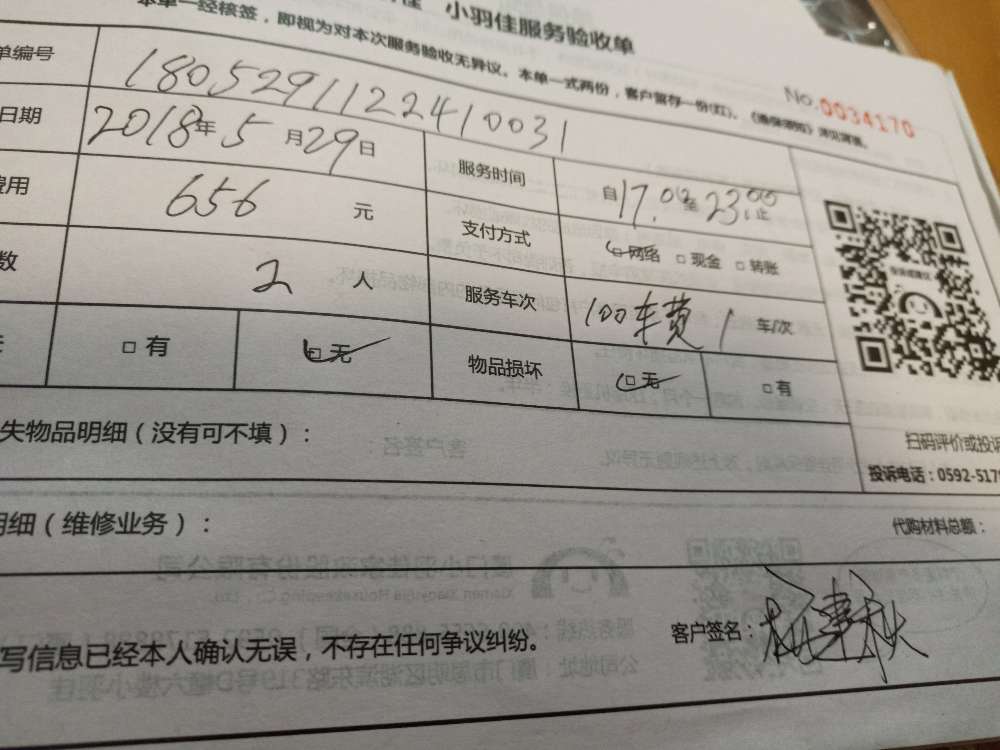 小羽佳服务验收单
本单一经核签，即视为对本次服务验收无异议。本单一式两份，客户留存一份(红)。
No.0034170
单编号 180529112241 0031
日期 2018年5月29日 服务时间 自17.00至23.00止
费用 656 元 支付方式 □网络 □现金 □转账
数 2 人 服务车次 100车费 1 车/次
□有 □无 物品损坏 □无 □有
扫码评价或投诉
失物品明细（没有可不填）：
投诉电话：0592-517
明细（维修业务）：
代购材料总额：
写信息已经本人确认无误，不存在任何争议纠纷。
客户签名：